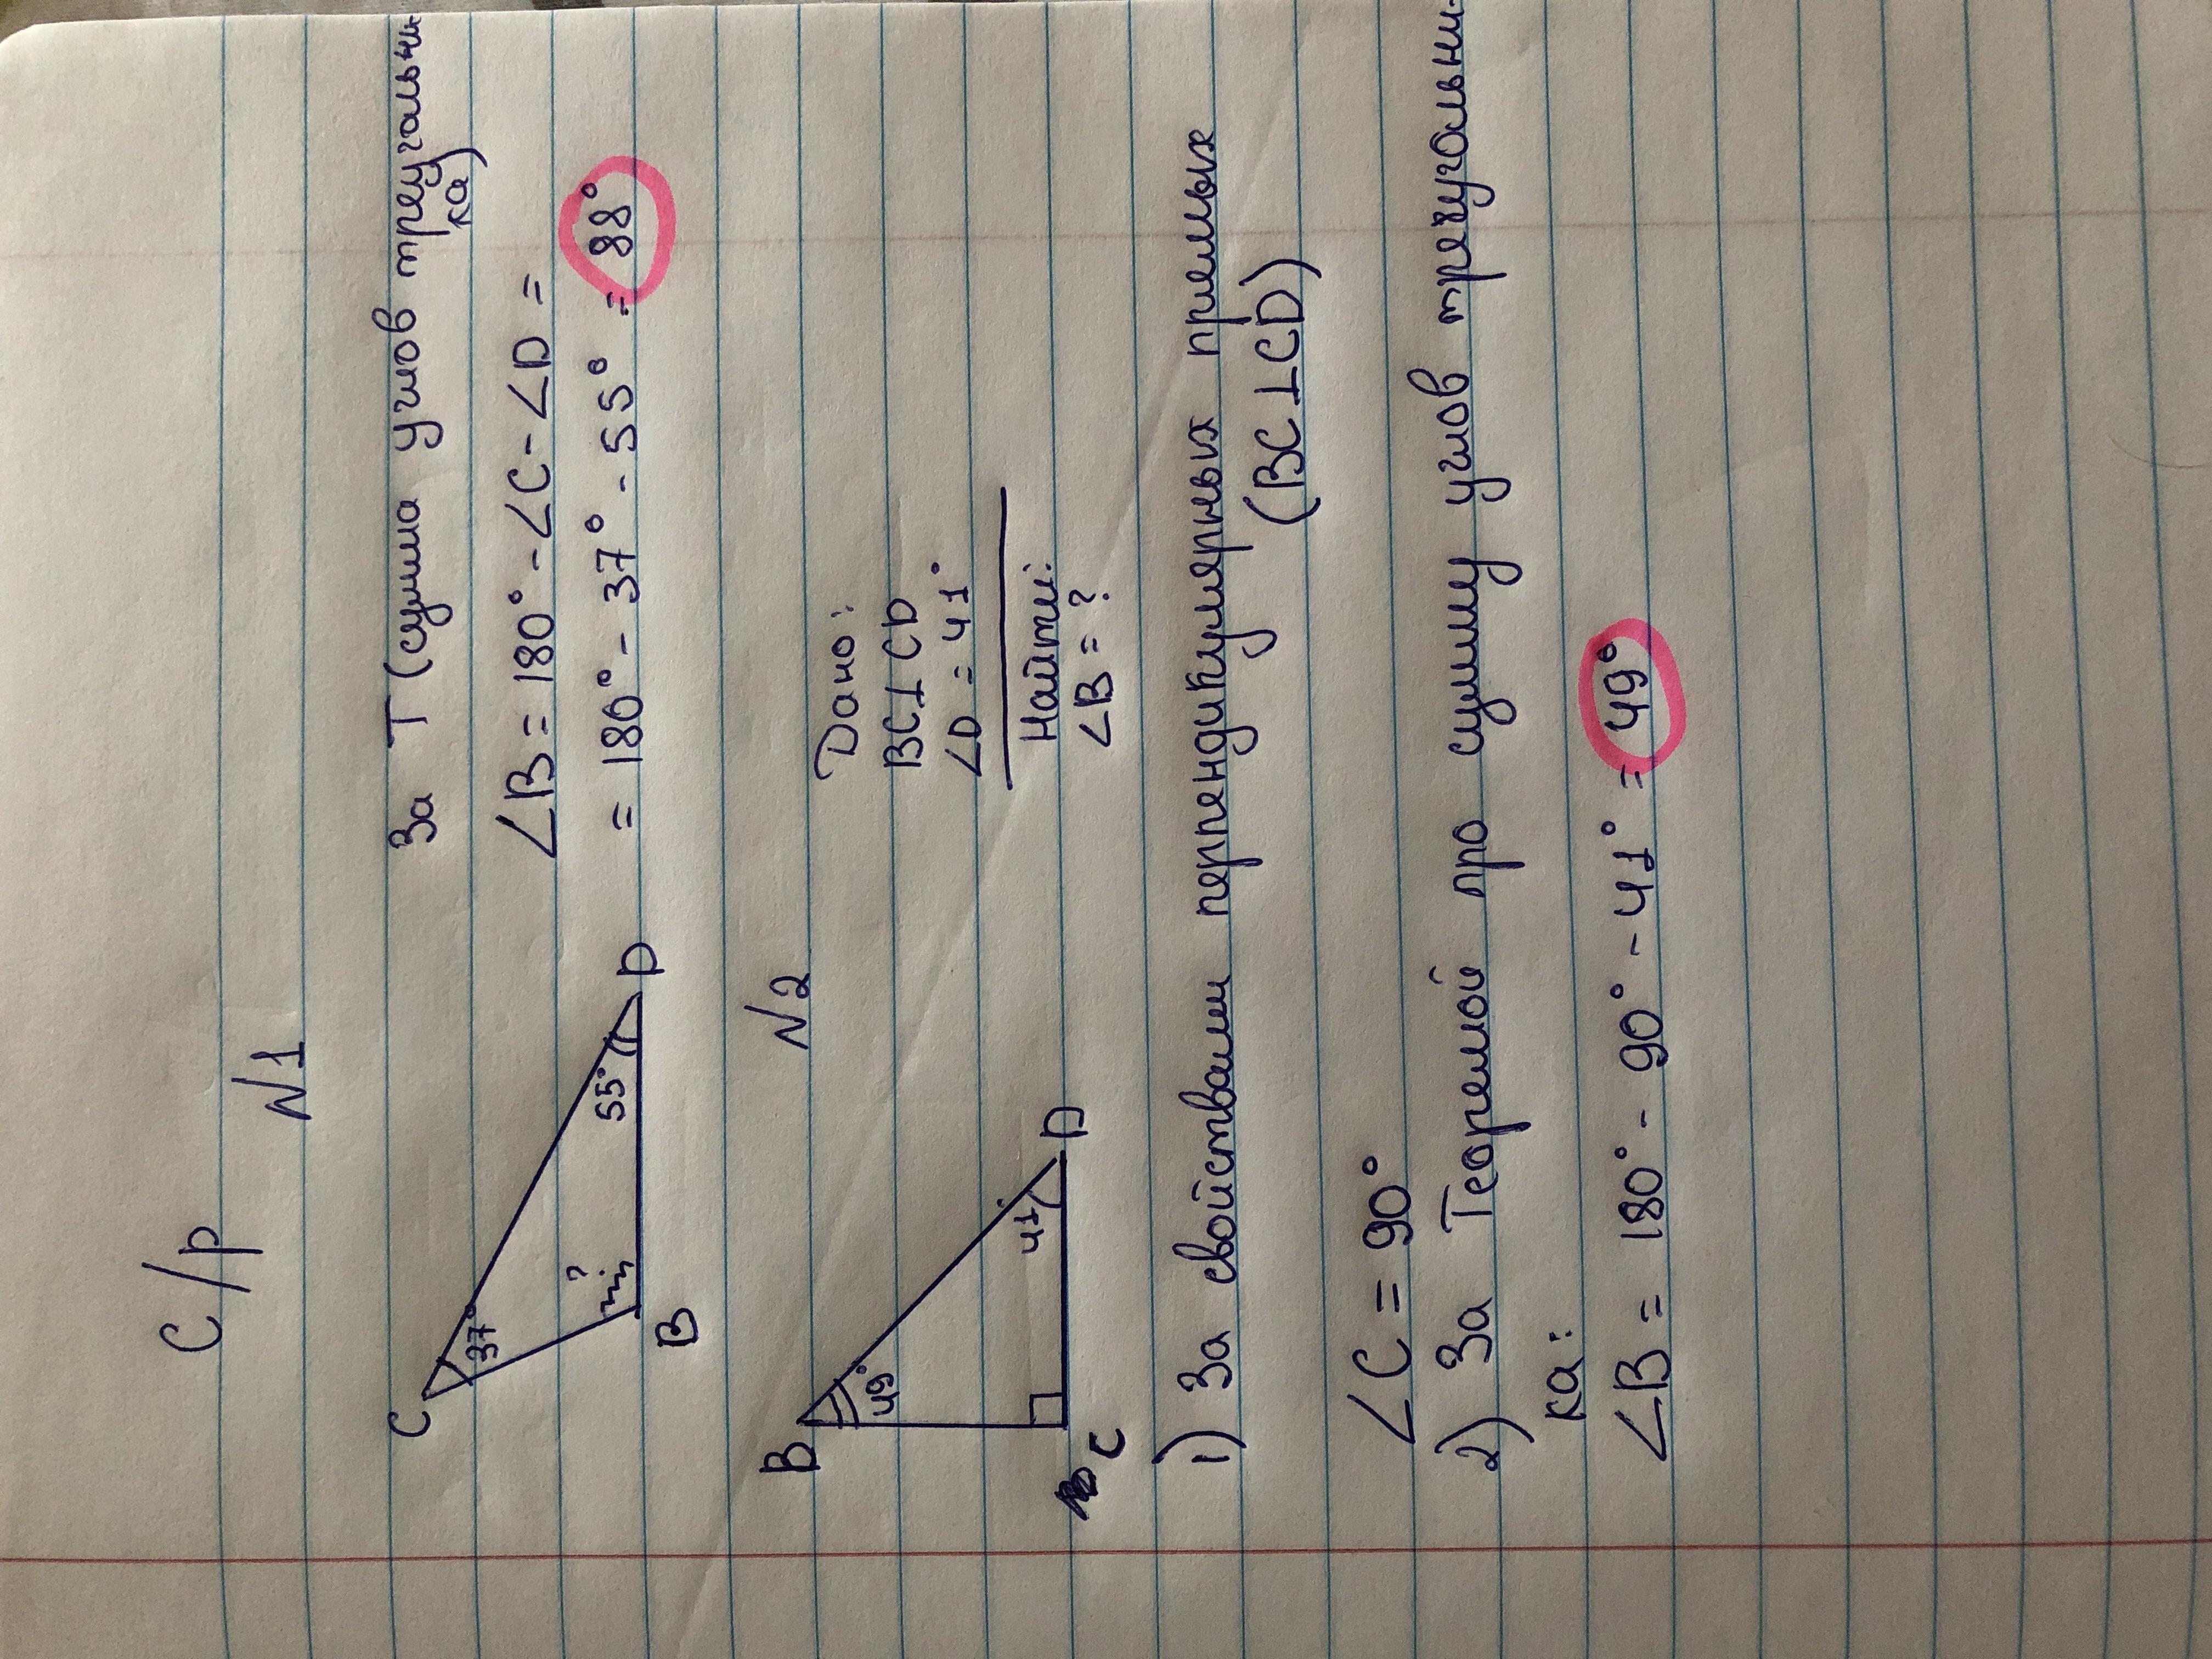 С/р
№1
C
37°
?
B
55°
D
За Т (сумма углов треугольни-
ка)
∠B = 180° - ∠C - ∠D =
= 180° - 37° - 55° = 88°
№2
B
49°
41
C
D
Дано:
BC⊥CD
∠D = 41°
Найти:
∠B = ?
1) За свойствами перпендикулярных прямых
(BC⊥CD)
∠C = 90°
2) За Теоремой про сумму углов треугольни-
ка:
∠B = 180° - 90° - 41° = 49°